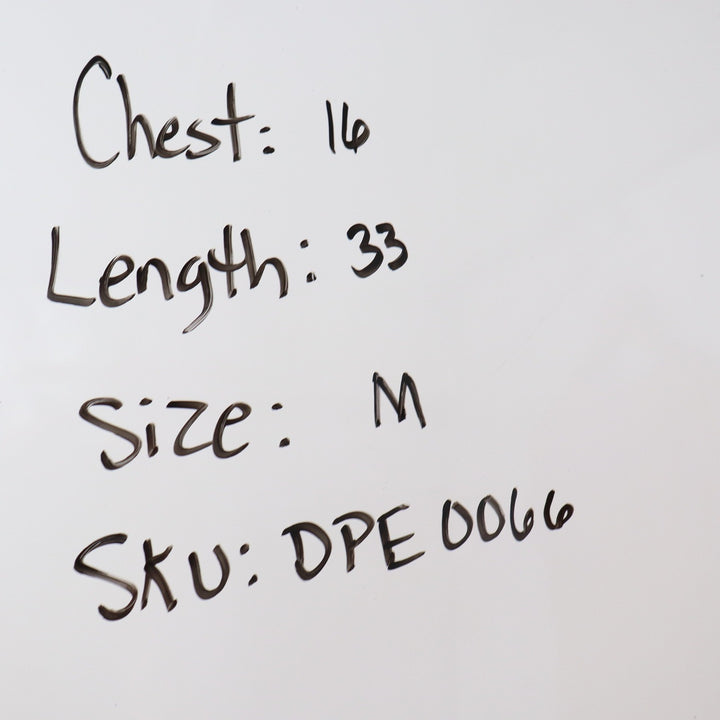 Chest: 16
Length: 33
Size: M
SKU: DPE 0066